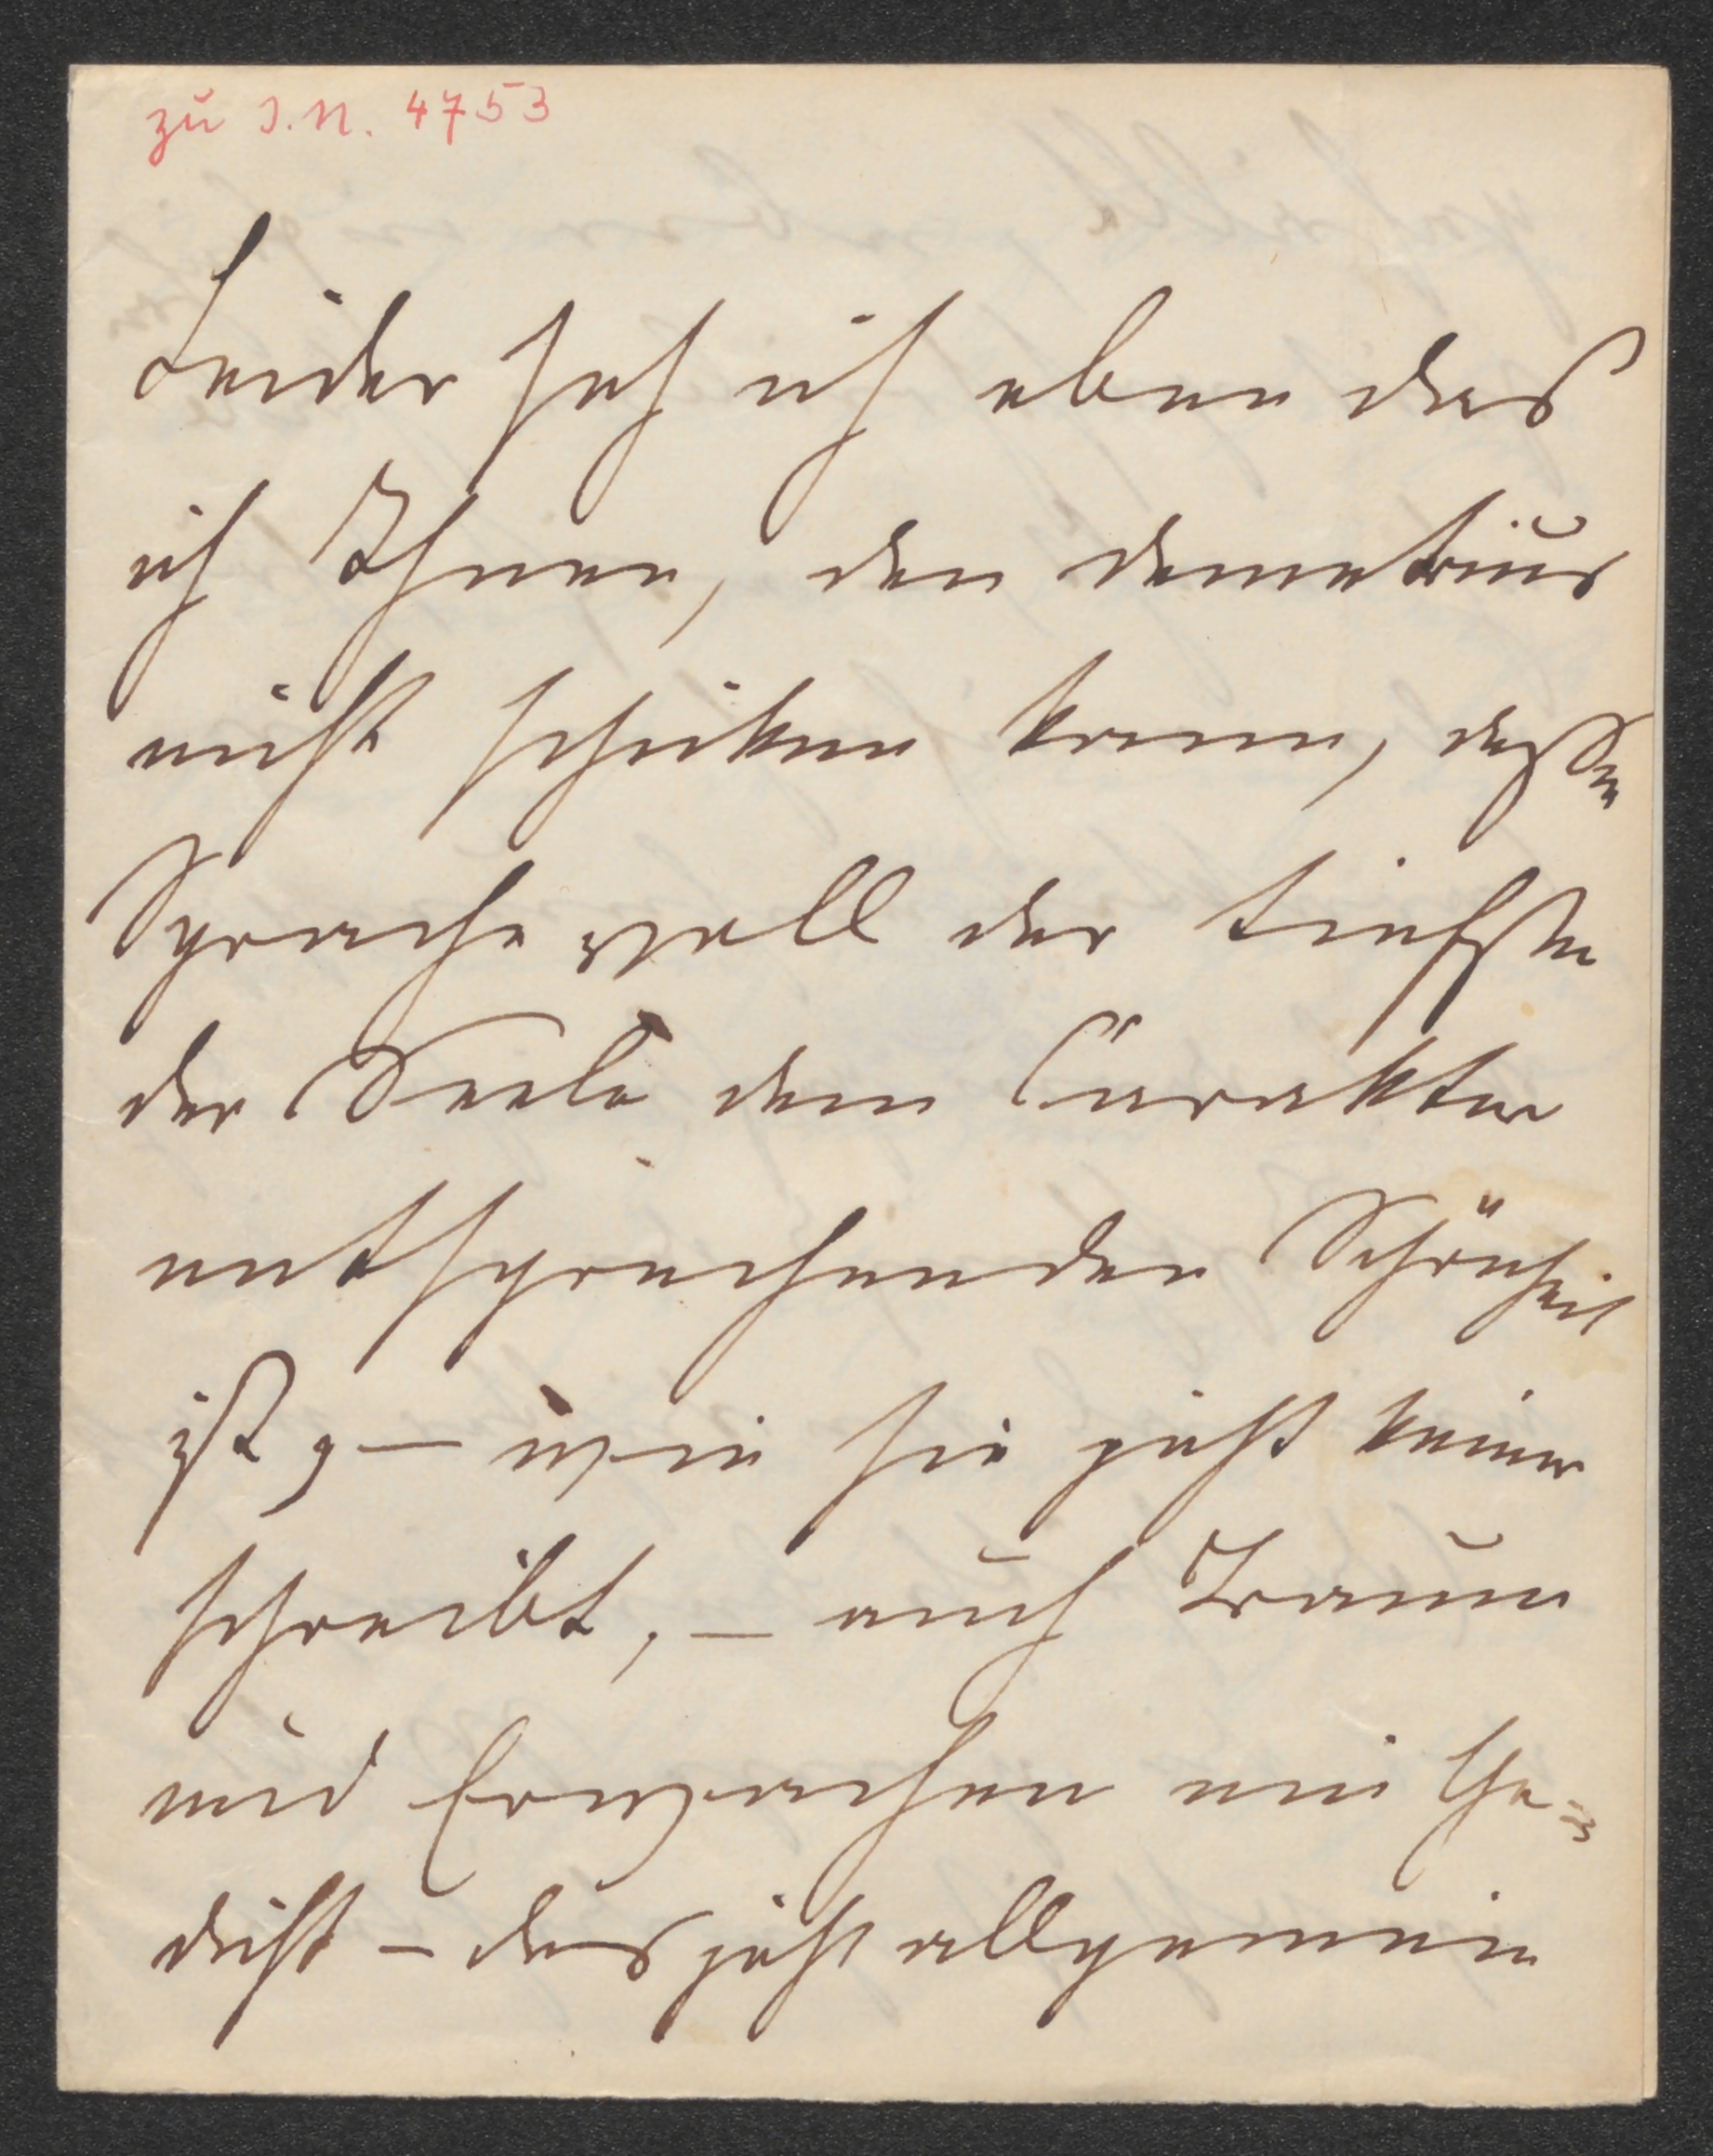 zu I.N. 4753
Leider seh ich eben das
ich Ihnen, den Demetrius
nicht schicken kann, deßen
Sprache voll der tiefsten
der Seele dem Carakter
entsprechenden Schönheit
ist, — wie sie jetzt keiner
schreibt, — auch Traum
und Erwachen ein Ge=
dicht – das jetzt allgemein